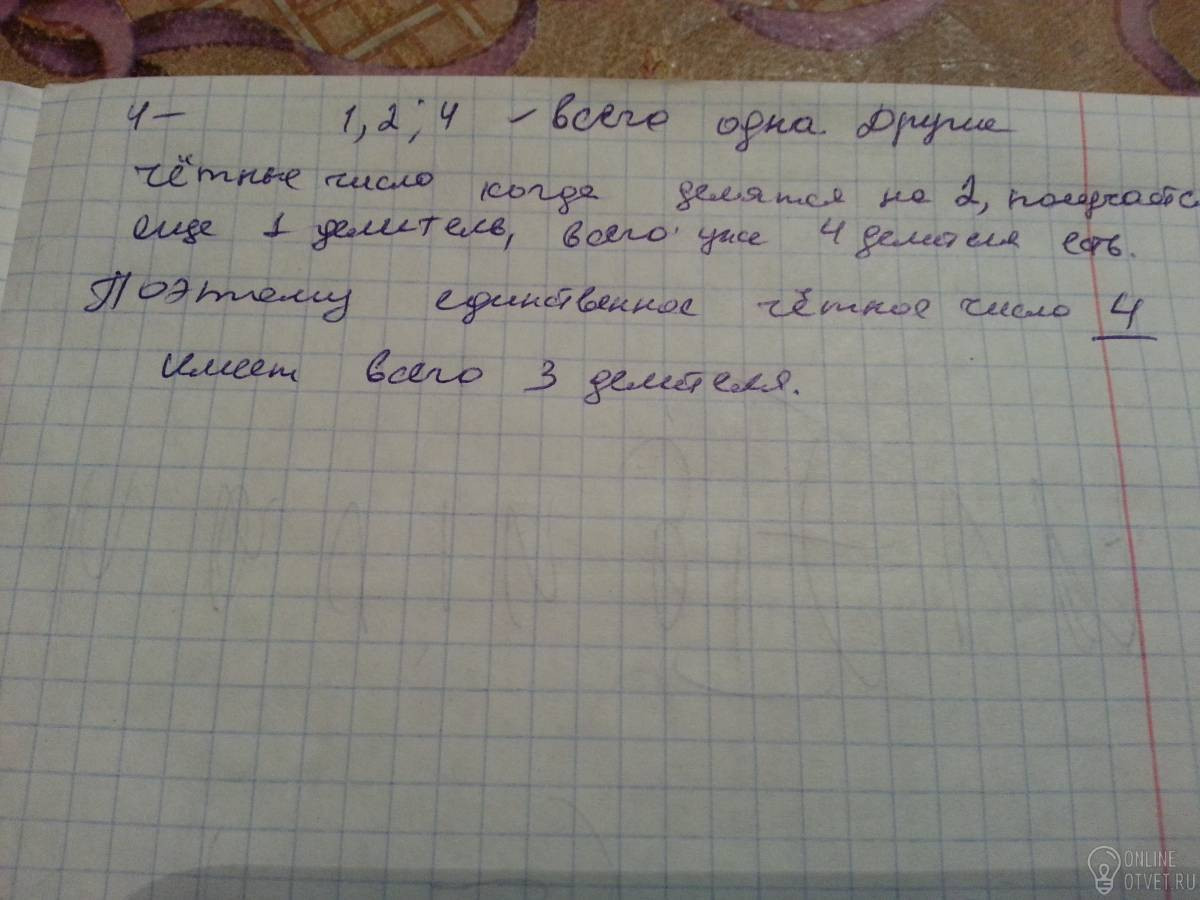 4 — 1, 2; 4 – всего одна. Другие
чётные число когда делятся на 2, получаетс
еще 1 делитель, всего уже 4 делителя есть.
Поэтому единственное чётное число 4
имеет всего 3 делителя.
ONLINE
OTVET.RU